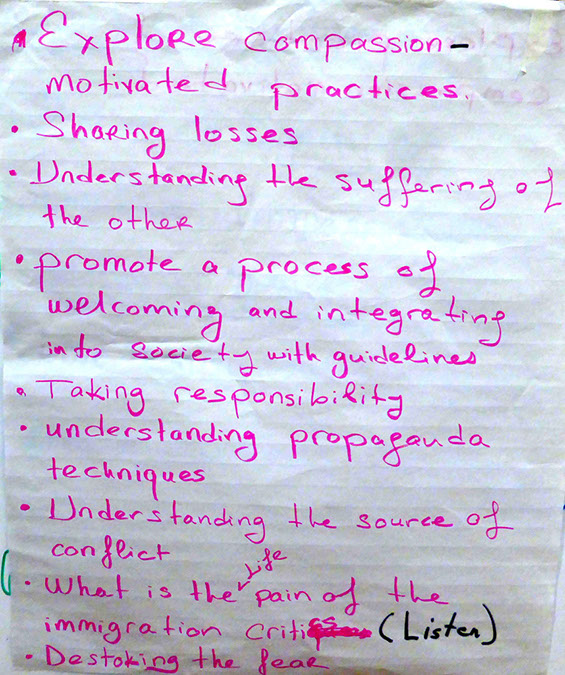 • Explore compassion-
motivated practices.
• Sharing losses
• Understanding the suffering of
the other
• promote a process of
welcoming and integrating
into society with guidelines
• Taking responsibility
• understanding propaganda
techniques
• Understanding the source of
conflict
Life
• What is the pain of the
immigration critics (Listen)
• Destoking the fear